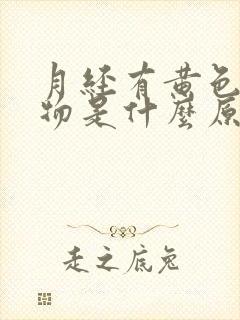 月经有黄色
物是什麼原
走之底兔